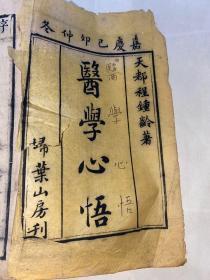 嘉慶己卯仲冬
天都程鍾齡著
醫學心悟
學心悟
掃葉山房刊